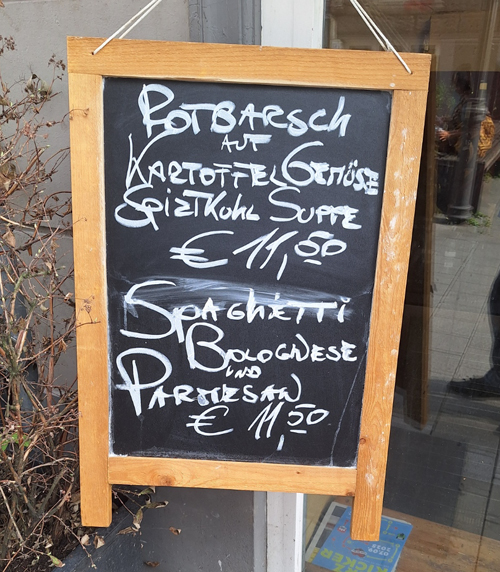 ROTBARSCH
AUF
KARTOFFELGEMÜSE
SPIZTKOHL SUPPE
€ 11,50
SPAGHETTI
BOLOGNESE
UND
PARMESAN
€ 11,50